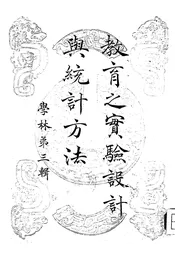 教育之實驗設計
與統計方法
學林第三輯